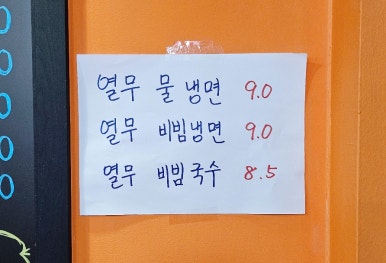 열무 물냉면 9.0
열무 비빔냉면 9.0
열무 비빔국수 8.5